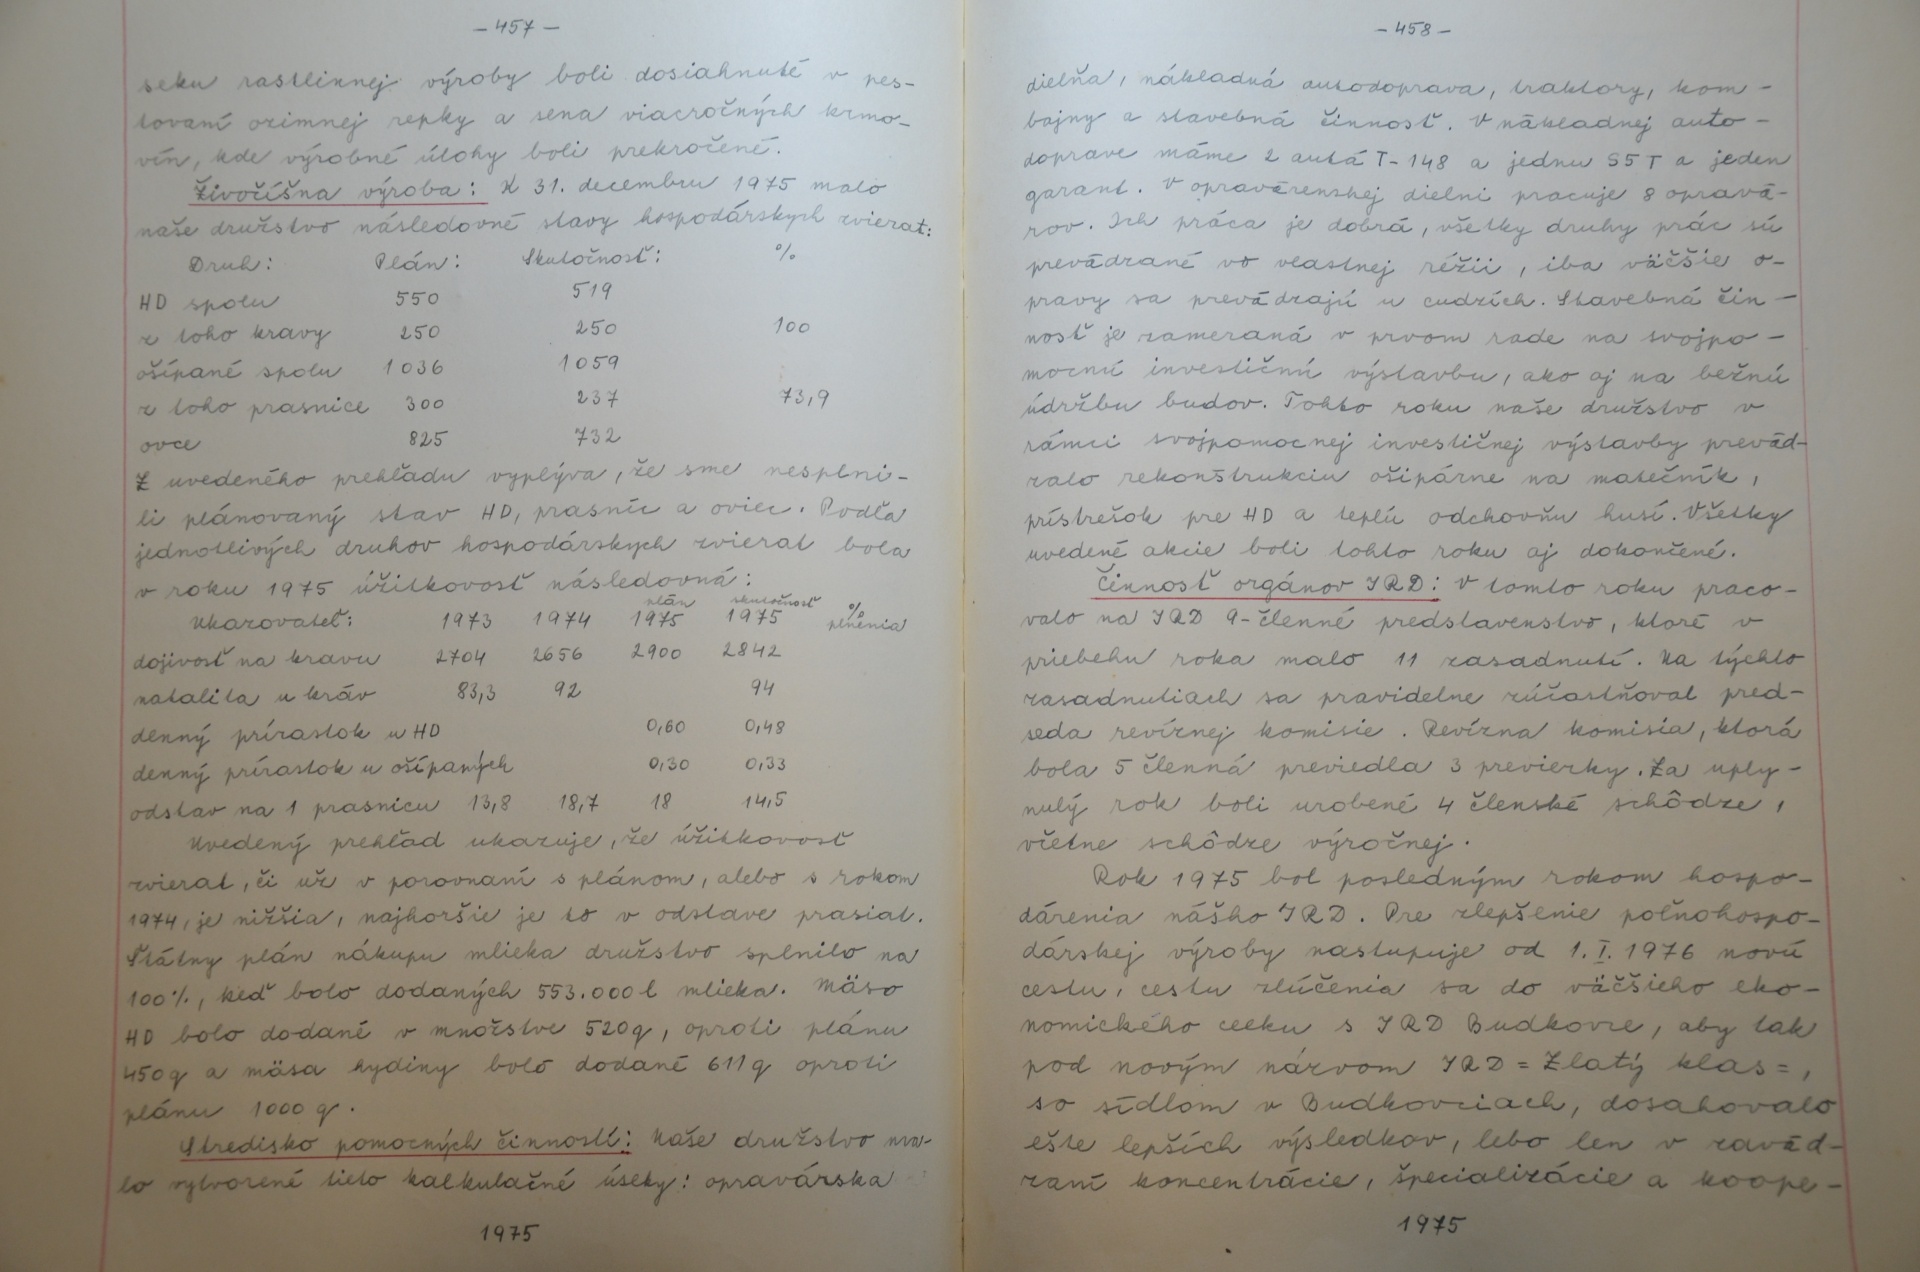 - 457 -
seku rastlinnej výroby boli dosiahnuté v pes-
tovaní ozimnej repky a sena viacročných krmo-
vín, kde výrobné úlohy boli prekročené.
Živočíšna výroba: K 31. decembru 1975 malo
naše družstvo následovné stavy hospodárskych zvierat:
Druh: Plán: Skutočnosť: %
HD spolu 550 519
z toho kravy 250 250 100
ošípané spolu 1036 1059
z toho prasnice 300 237 73,9
ovce 825 732
Z uvedeného prehľadu vyplýva, že sme nesplni-
li plánovaný stav HD, prasníc a oviec. Podľa
jednotlivých druhov hospodárskych zvierat bola
v roku 1975 úžitkovosť následovná:
plán skutočnosť %
Ukazovateľ: 1973 1974 1975 1975 plnenia
dojivosť na kravu 2704 2656 2900 2842
natalita u kráv 83,3 92 94
denný prírastok u HD 0,60 0,48
denný prírastok u ošípaných 0,30 0,33
odstav na 1 prasnicu 13,8 18,7 18 14,5
Uvedený prehľad ukazuje, že úžitkovosť
zvierat, či už v porovnaní s plánom, alebo s rokom
1974, je nižšia, najhoršie je to v odstave prasiat.
Štátny plán nákupu mlieka družstvo splnilo na
100%, keď bolo dodaných 553.000 l mlieka. Mäso
HD bolo dodané v množstve 520 q, oproti plánu
450 q a mäsa hydiny bolo dodané 611 q oproti
plánu 1000 q.
Stredisko pomocných činností: Naše družstvo ma-
lo vytvorené tieto kalkulačné úseky: opravárska
1975
- 458 -
dielňa, nákladná autodoprava, traktory, kom-
bajny a stavebná činnosť. V nákladnej auto-
doprave máme 2 autá T-148 a jednu S5T a jeden
garant. V opravárenskej dielni pracuje 8 opravá-
rov. Ich práca je dobrá, všetky druhy prác sú
prevádzané vo vlastnej réžii, iba väčšie o-
pravy sa prevádzajú u cudzích. Stavebná čin-
nosť je zameraná v prvom rade na svojpo-
mocnú investičnú výstavbu, ako aj na bežnú
údržbu budov. Tohto roku naše družstvo v
rámci svojpomocnej investičnej výstavby prevád-
zalo rekonštrukciu ošipárne na matečník,
prístrešok pre HD a teplú odchovňu husí. Všetky
uvedené akcie boli tohto roku aj dokončené.
Činnosť orgánov JRD: V tomto roku praco-
valo na JRD 9-členné predstavenstvo, ktoré v
priebehu roka malo 11 zasadnutí. Na týchto
zasadnutiach sa pravidelne zúčastňoval pred-
seda revíznej komisie. Revízna komisia, ktorá
bola 5 členná previedla 3 previerky. Za uply-
nulý rok boli urobené 4 členské schôdze,
včetne schôdze výročnej.
Rok 1975 bol posledným rokom hospo-
dárenia nášho JRD. Pre zlepšenie poľnohospo-
dárskej výroby nastupuje od 1. I. 1976 novú
cestu, cestu zlúčenia sa do väčšieho eko-
nomického celku s JRD Budkovce, aby tak
pod novým názvom JRD = Zlatý klas =,
so sídlom v Budkovciach, dosahovalo
ešte lepších výsledkov, lebo len v zavád-
zaní koncentrácie, špecializácie a koope-
1975